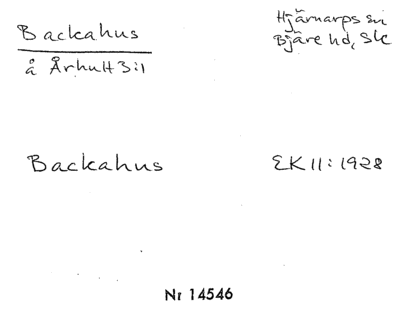 Backahus
å Århult 3:1
Hjärnarps sn
Bjäre hd, Sk
Backahus
EK 11:1928
Nr 14546